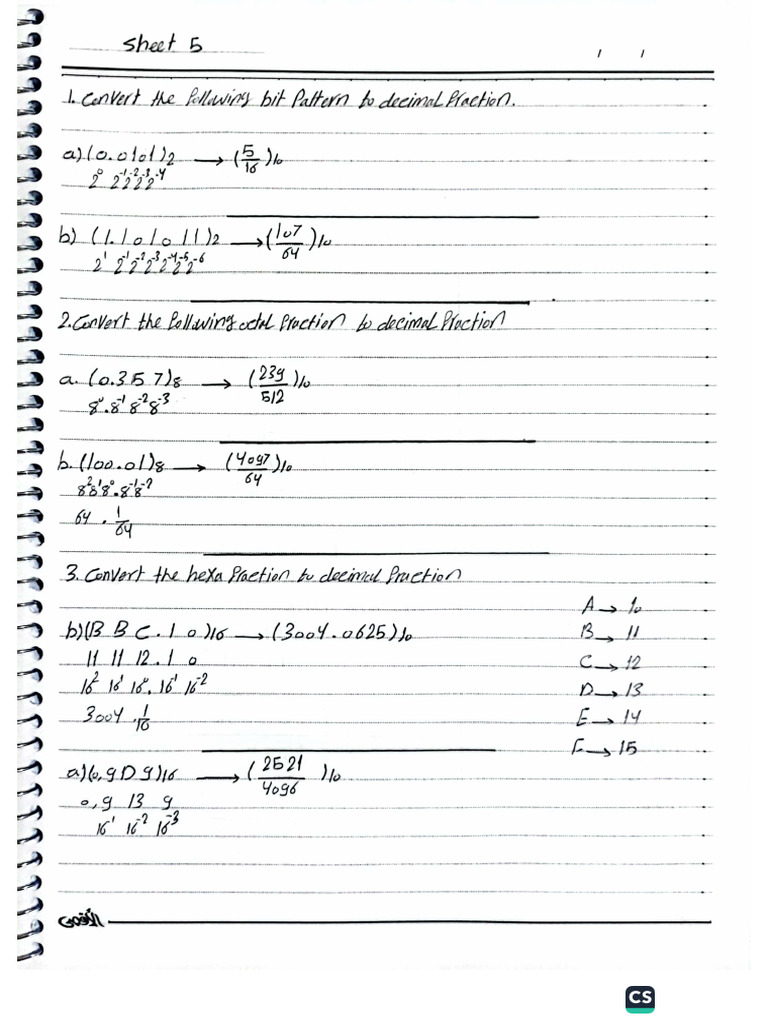 Sheet 5
/ /
1. Convert the following bit Pattern to decimal fraction.
a) (0.0101)₂ → (5/16)₁₀
2⁰ 2⁻¹2⁻²2⁻³2⁻⁴
b) (1.101011)₂ → (107/64)₁₀
2¹ 2⁻¹2⁻²2⁻³2⁻⁴2⁻⁵2⁻⁶
2. Convert the following octal fraction to decimal fraction
a. (0.357)₈ → (239/512)₁₀
8⁰.8⁻¹8⁻²8⁻³
b. (100.01)₈ → (4097/64)₁₀
8²8¹8⁰.8⁻¹8⁻²
64 . 1/64
3. Convert the hexa fraction to decimal fraction
A → 10
b) (BBC.10)₁₆ → (3004.0625)₁₀
B → 11
11 11 12 . 1 0
C → 12
16² 16¹ 16⁰. 16⁻¹ 16⁻²
D → 13
3004 . 1/16
E → 14
F → 15
a) (0,9D9)₁₆ → (2521/4096)₁₀
0,9 13 9
16⁻¹ 16⁻² 16⁻³
CS